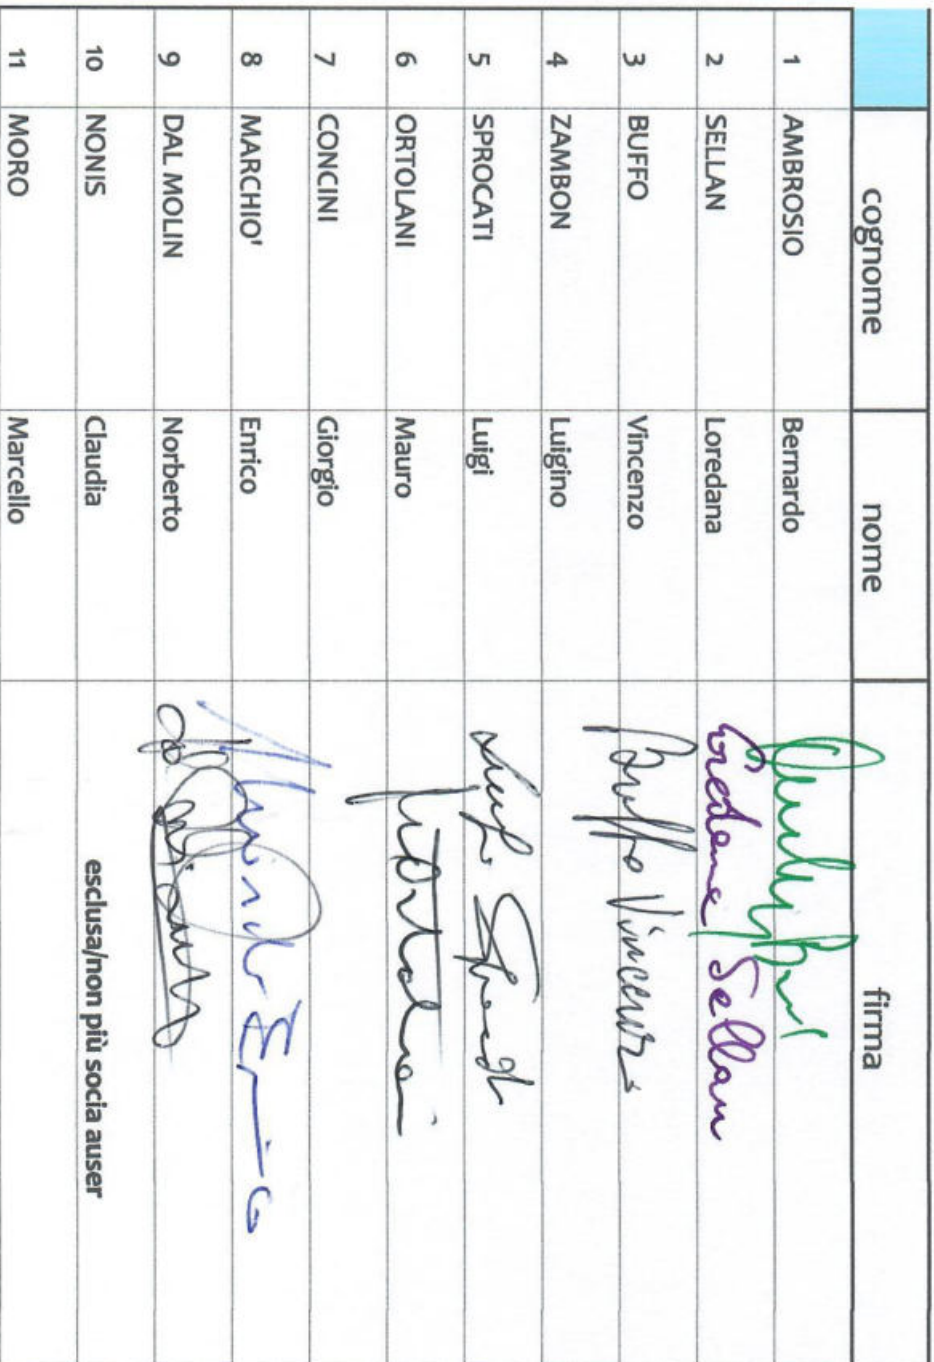 cognome nome firma
1 AMBROSIO Bernardo
2 SELLAN Loredana Loredana Sellan
3 BUFFO Vincenzo Buffo Vincenzo
4 ZAMBON Luigino
5 SPROCATI Luigi Luigi
6 ORTOLANI Mauro Ortolani
7 CONCINI Giorgio
8 MARCHIO' Enrico Enrico
9 DAL MOLIN Norberto
10 NONIS Claudia esclusa/non più socia auser
11 MORO Marcello